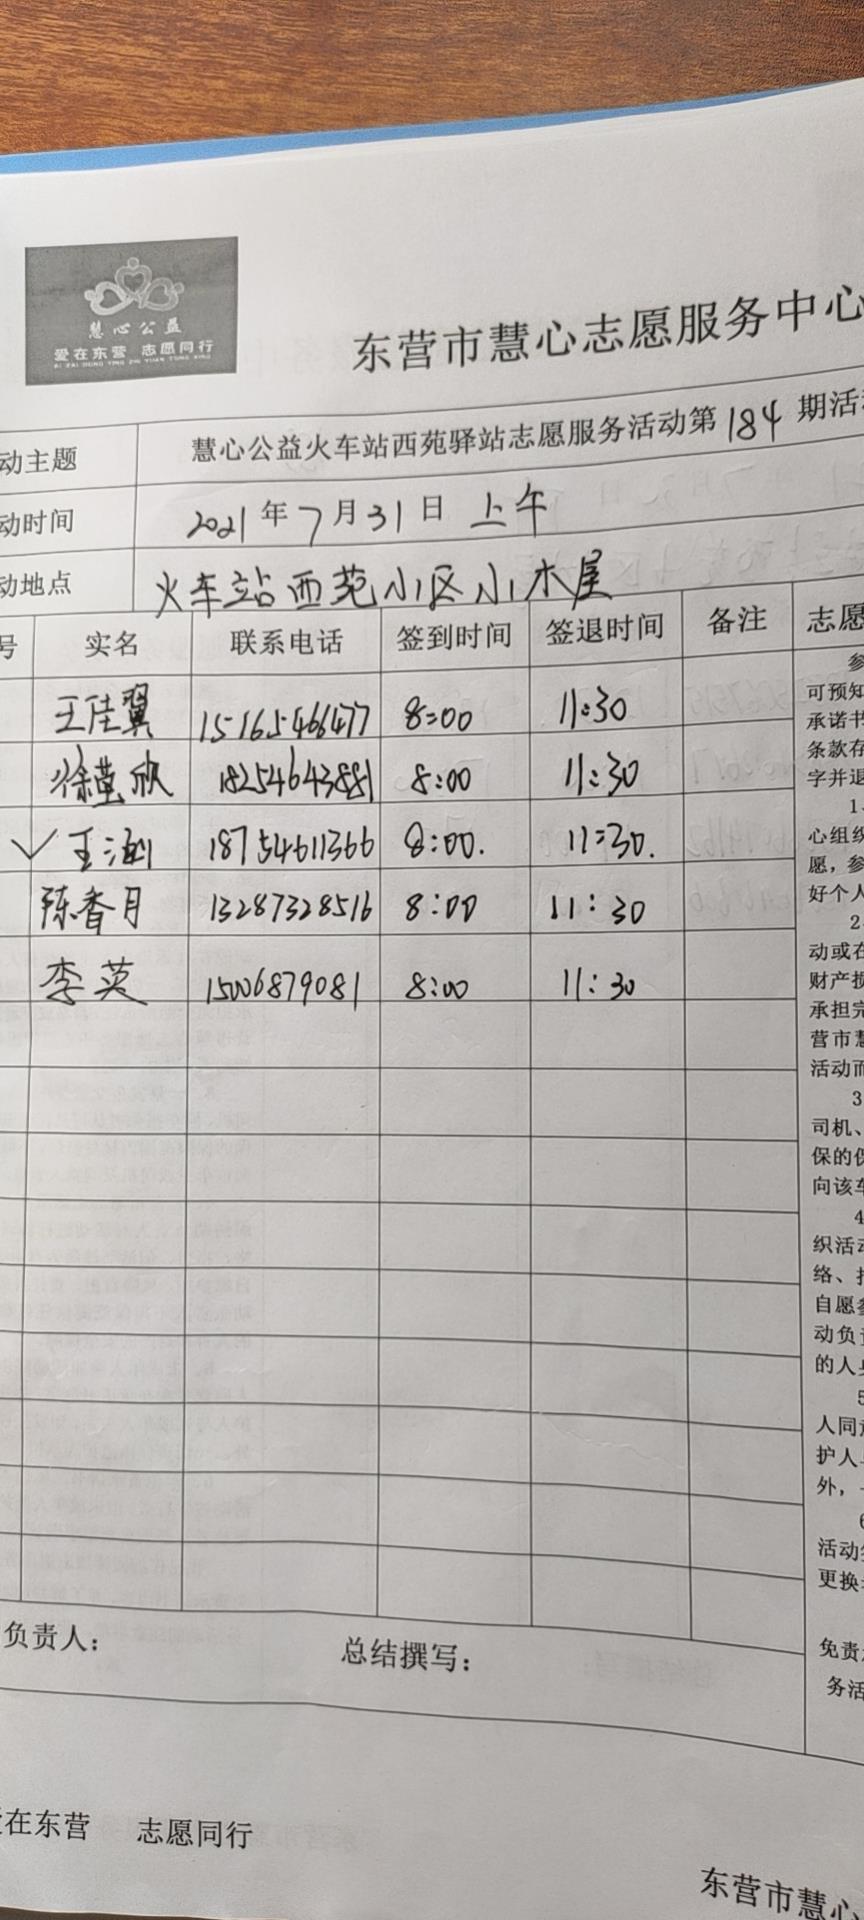 慧心公益
爱在东营 志愿同行
AI ZAI DONG YING ZHI YUAN TONG XING
东营市慧心志愿服务中心
动主题 慧心公益火车站西苑驿站志愿服务活动第184期活动
动时间 2021年7月31日 上午
动地点 火车站西苑小区小木屋
号 实名 联系电话 签到时间 签退时间 备注 志愿
王佳翼 15165466477 8:00 11:30
徐莹欣 18254643881 8:00 11:30
✓ 王 18754611366 8:00. 11:30.
陈香月 13287328516 8:00 11:30
李英 15006879081 8:00 11:30
参
可预知
承诺书
条款存
字并退
1
心组织
愿，参
好个人
2
动或在
财产损
承担完
营市慧
活动而
3
司机、
保的保
向该车
4
织活动
络、
自愿参
动负责
的人身
5
人同意
护人
外，
6
活动
更换
免责
务活
负责人： 总结撰写：
在东营 志愿同行
东营市慧心